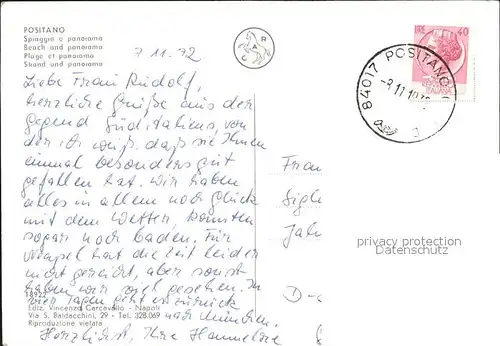 POSITANO
Spiaggia e panorama
Beach and panorama
Plage et panorama
Strand und panorama
7 11. 72
R
A
C
LIRE 40
ITALIANA
84017 POSITANO
-9.11.19
Liebe Frau Rudolf,
herzliche Grüße aus der
Gegend Süditaliens, von
der ich weiß, daß sie Ihnen
einmal besonders gut
gefallen hat. Wir haben
alles in allem noch Glück
mit dem Wetter, konnten
sogar noch baden. Für
Neapel hat die Zeit leider
nicht gereicht, aber sonst
haben wir viel gesehen. In
Tagen geht es zurück
nach München.
Herzlichst, Ihre Hannelore
Frau
Sigl
Jah
D-
privacy protection
Datenschutz
18922
Ediz. Vincenzo Carcavallo - Napoli
Via S. Baldacchini, 29 - Tel. 328.069
Riproduzione vietata